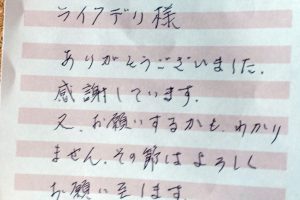 ライフデリ様
ありがとうございました.
感謝しています.
又、お願いするかも、わかり
ません、その節はよろしく
お願い至します.